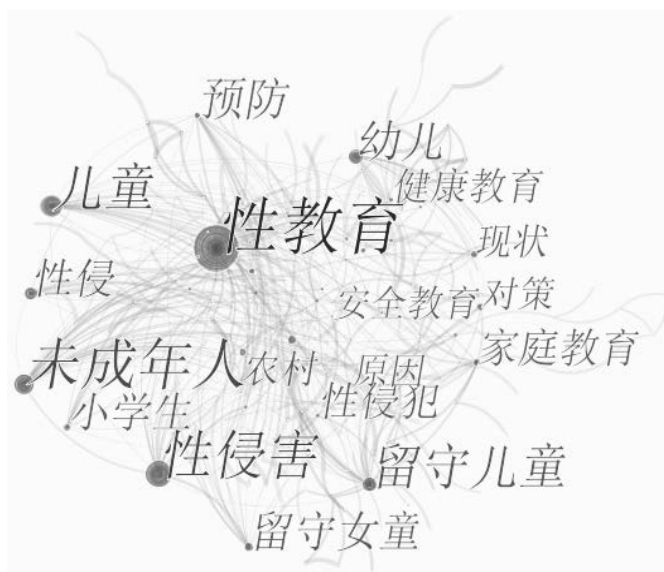 预防
幼儿
儿童
健康教育
性教育
现状
性侵
安全教育
对策
家庭教育
未成年人
农村
原因
小学生
性侵犯
性侵害
留守儿童
留守女童